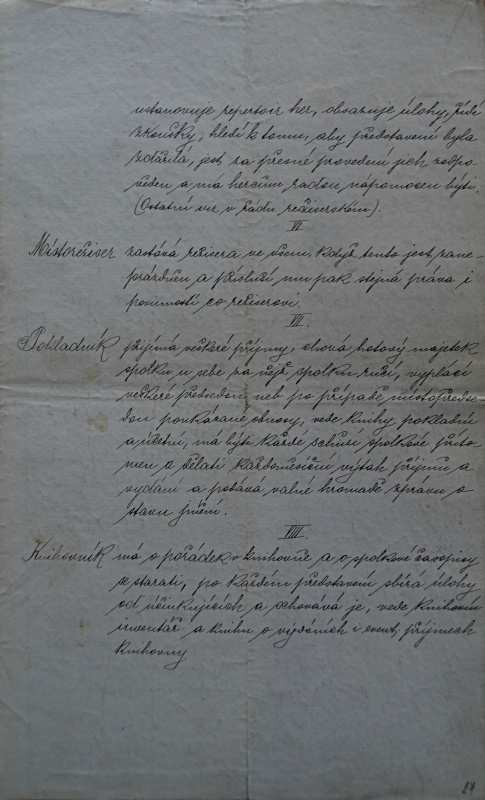 ustanovuje repertoir her, obsazuje úlohy, řídí
zkoušky, hledí k tomu, aby představení byla
zdařilá, jest za přesné provedení jich zodpo-
věden a má hercům radou nápomocen býti.
(Ostatní viz v řádu režiserském).
VI.
Místorežiser zastává režisera ve všem, když tento jest zane-
prázdněn a přísluší mu pak stejná práva i
povinnosti co režiserovi.
VII.
Pokladník přijímá veškeré příjmy, chová hotový majetek
spolku u sebe za nějž spolku ručí, vyplácí
veškeré předsedou neb po případě místopředse-
dou poukázané obnosy, vede knihy pokladní
a účetní, má býti každé schůzi spolkové příto-
men a dělati každoměsíční výtah příjmů a
vydání a podává valné hromadě zprávu o
stavu jmění.
VIII.
Knihovník má o pořádek v knihovně a o spolkové časopisy
se starati, po každém představení sbírá úlohy
od účinkujících a schovává je, vede knihovní
inventář a knihu o vydáních i event. příjmech
knihovny
24